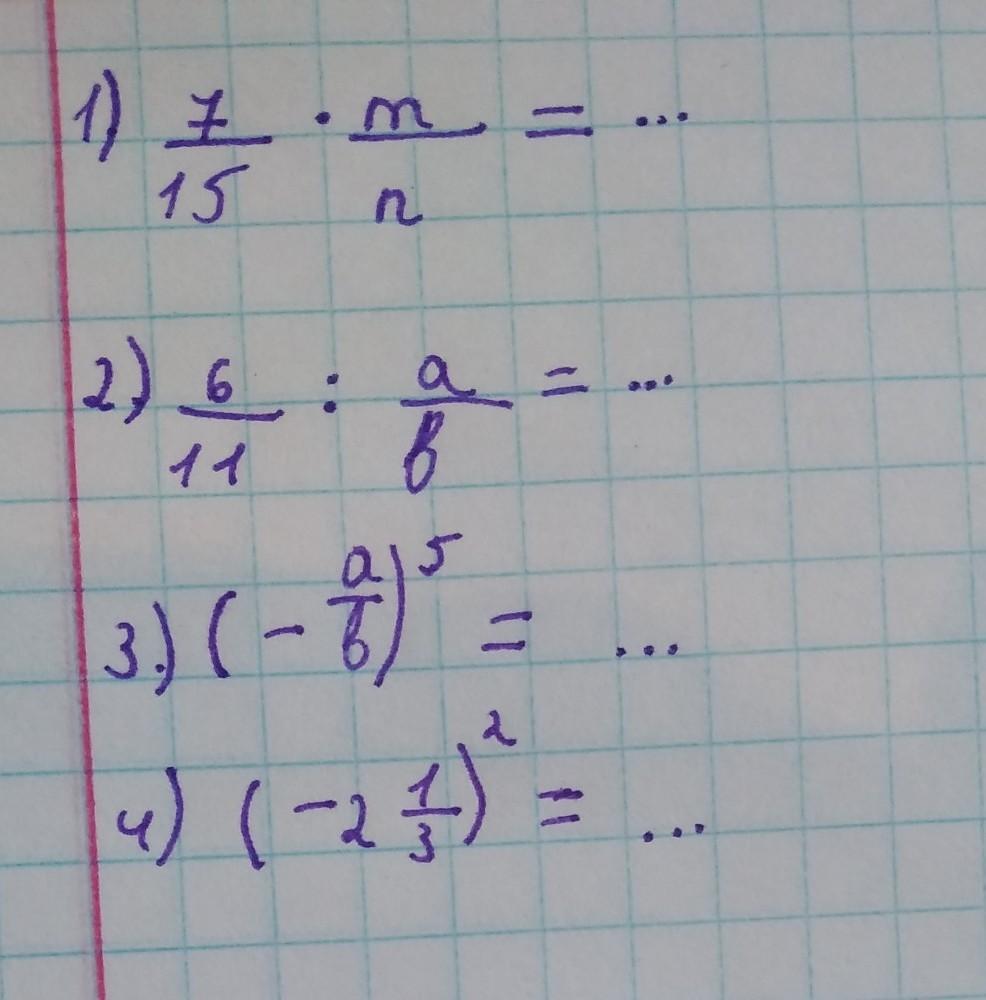 1) 7/15 · m/n = ...
2.) 6/11 : a/b = ...
3.) (- a/b)^5 = ...
4) (-2 1/3)^2 = ...